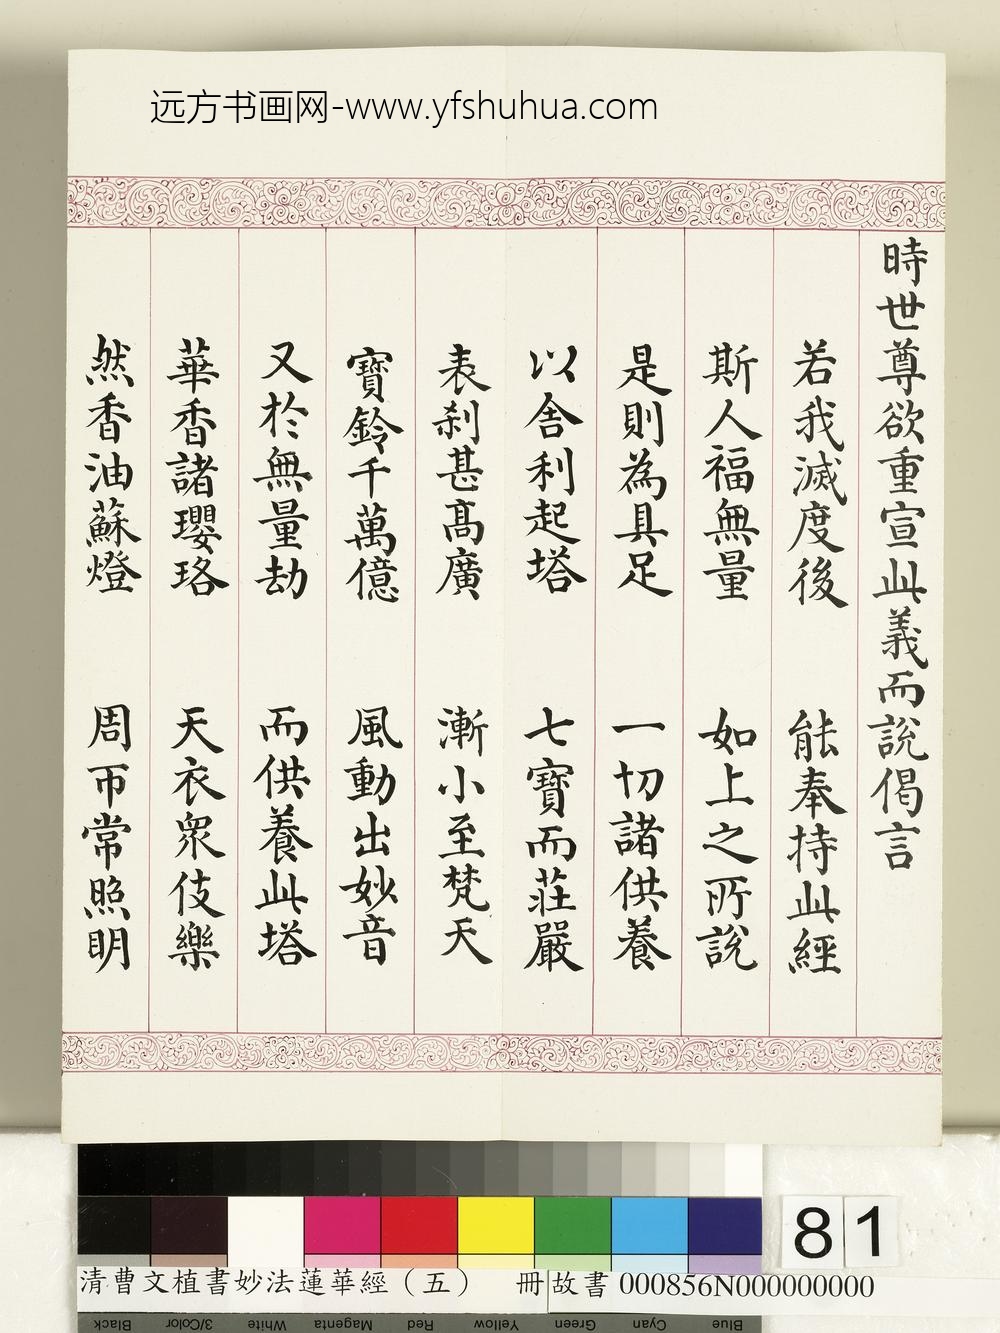 远方书画网-www.yfshuhua.com
時世尊欲重宣此義而說偈言
若我滅度後 能奉持此經
斯人福無量 如上之所說
是則為具足 一切諸供養
以舍利起塔 七寶而莊嚴
表剎甚高廣 漸小至梵天
寶鈴千萬億 風動出妙音
又於無量劫 而供養此塔
華香諸瓔珞 天衣眾伎樂
然香油蘇燈 周帀常照明
81
清曹文植書妙法蓮華經（五） 冊 故書 000856N000000000
Black 3/Color White Magenta Red Yellow Green Cyan Blue